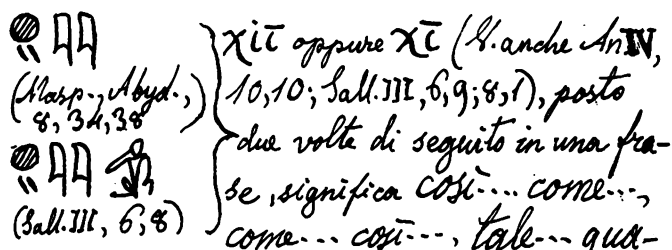 (Masp., Abyd.,
8, 34, 38
(Sall. III, 6, 8)
χiτ̄ oppure χτ̄ (V. anche An IV,
10, 10; Sall. III, 6, 9; 8, 1), posto
due volte di seguito in una fra-
se, significa così.... come...,
come... così..., tale... qua-